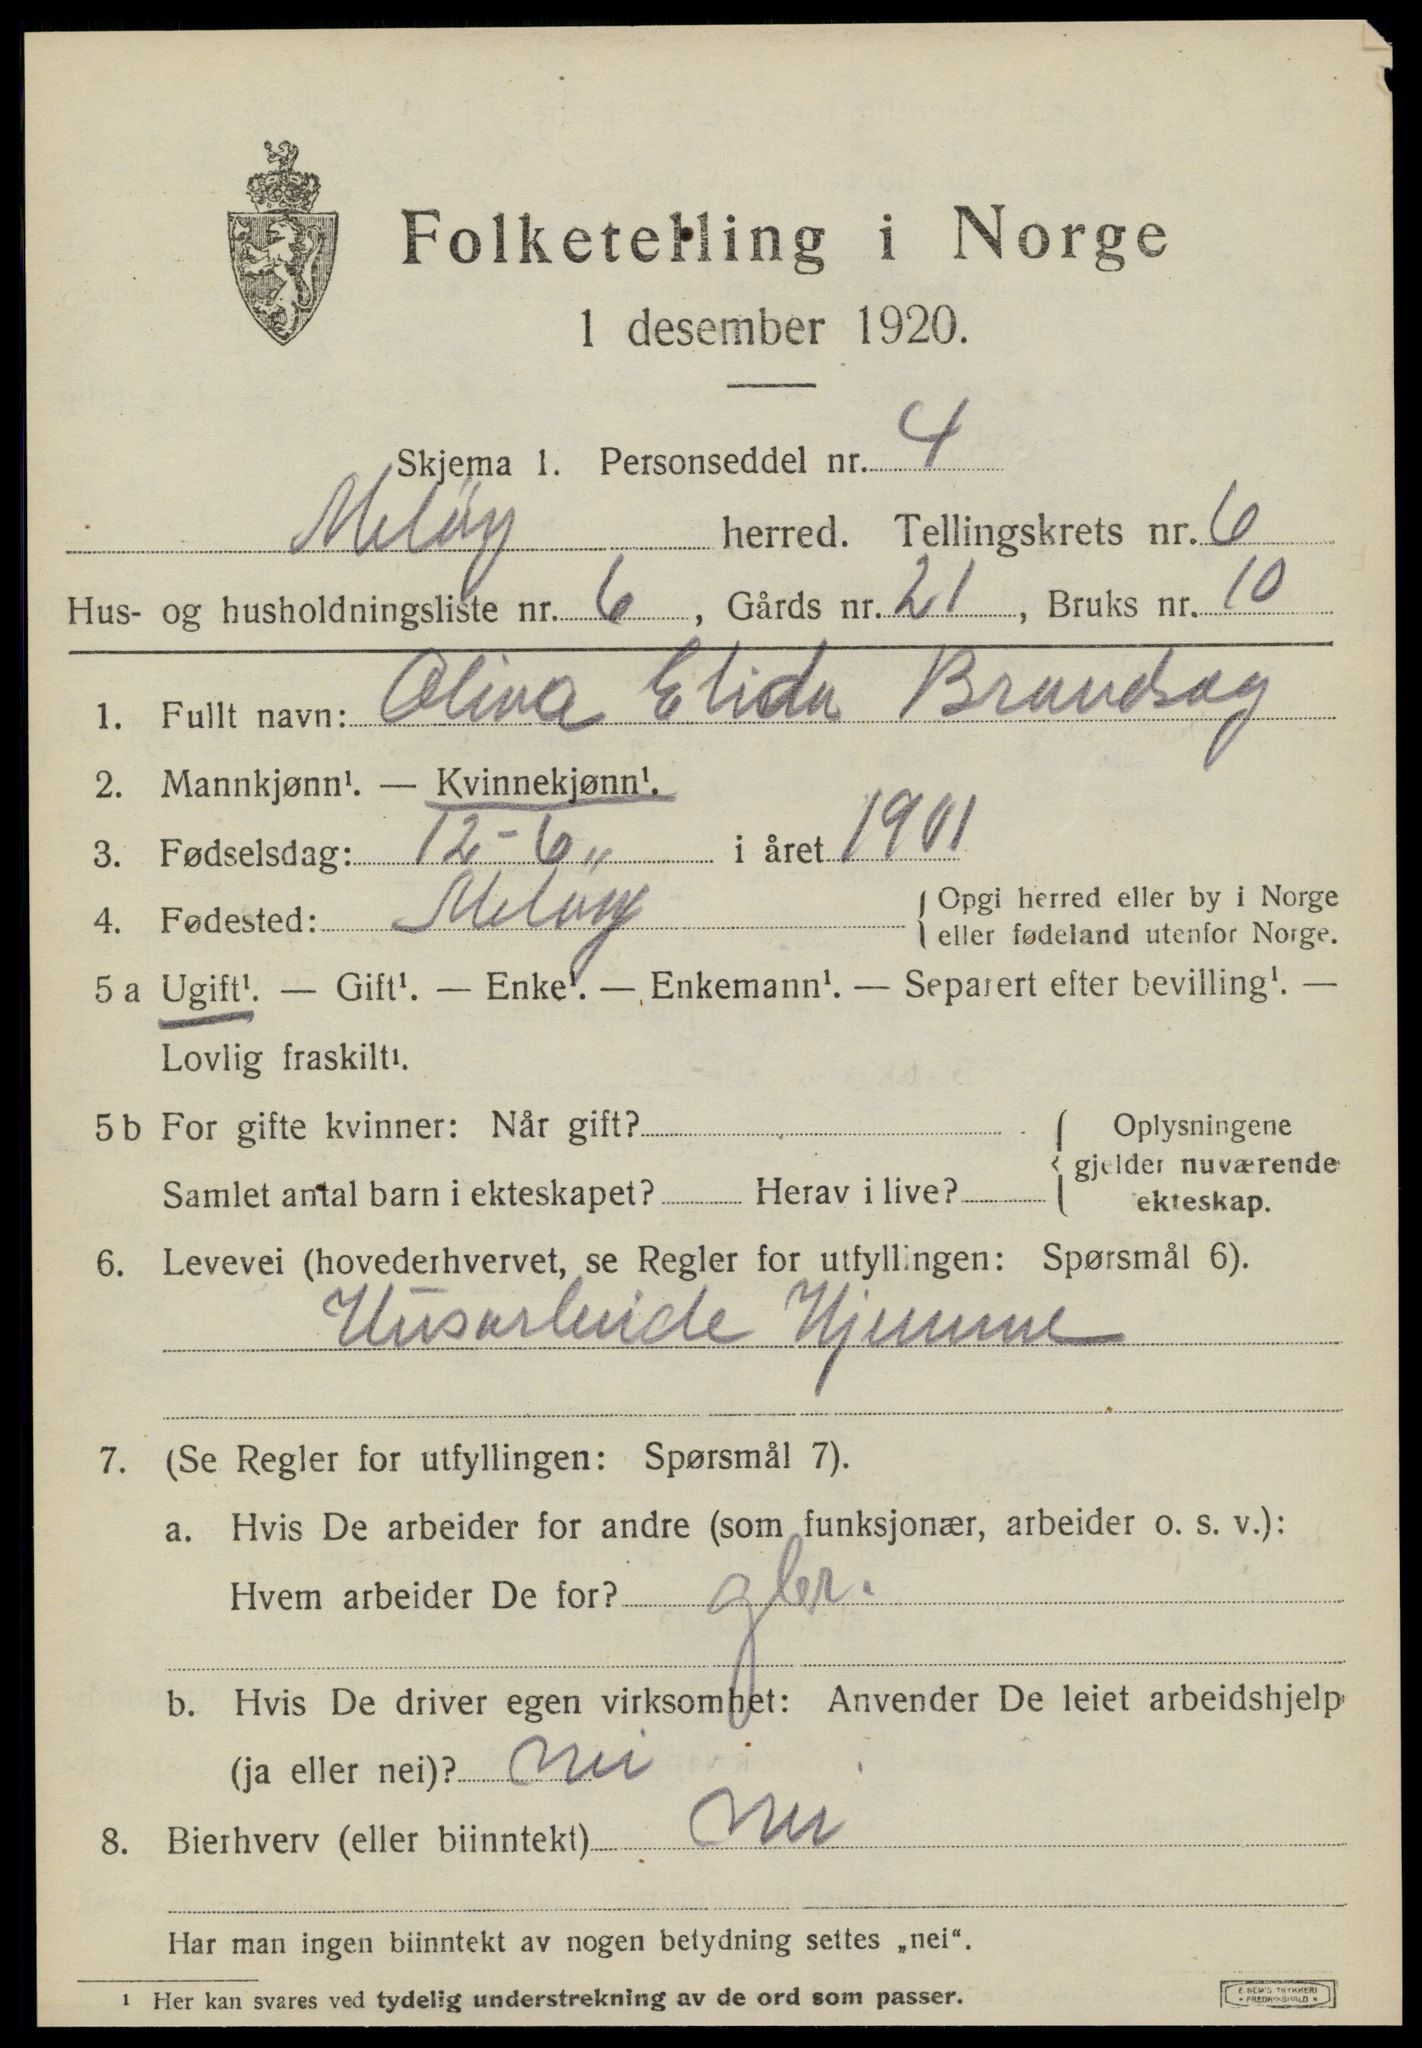 Folketelling i Norge
1 desember 1920.
Skjema 1. Personseddel nr. 4
Meløy herred. Tellingskrets nr. 6
Hus- og husholdningsliste nr. 6, Gårds nr. 21, Bruks nr. 10
1. Fullt navn: Olina Elida Brandsøy
2. Mannkjønn¹. — Kvinnekjønn¹.
3. Fødselsdag: 12-6" i året 1901
4. Fødested: Meløy { Opgi herred eller by i Norge
eller fødeland utenfor Norge.
5 a Ugift¹. — Gift¹. — Enke¹. — Enkemann¹. — Separert efter bevilling¹. —
Lovlig fraskilt¹.
5 b For gifte kvinner: Når gift? { Oplysningene
gjelder nuværende
Samlet antal barn i ekteskapet? Herav i live? ekteskap.
6. Levevei (hovederhvervet, se Regler for utfyllingen: Spørsmål 6).
Husarbeide Hjemme
7. (Se Regler for utfyllingen: Spørsmål 7).
a. Hvis De arbeider for andre (som funksjonær, arbeider o. s. v.):
Hvem arbeider De for? gbr.
b. Hvis De driver egen virksomhet: Anvender De leiet arbeidshjelp
(ja eller nei)? nei
8. Bierhverv (eller biinntekt) nei
Har man ingen biinntekt av nogen betydning settes „nei“.
¹ Her kan svares ved tydelig understrekning av de ord som passer.
E. SEM'S TRYKKERI
FREDRIKSHALD